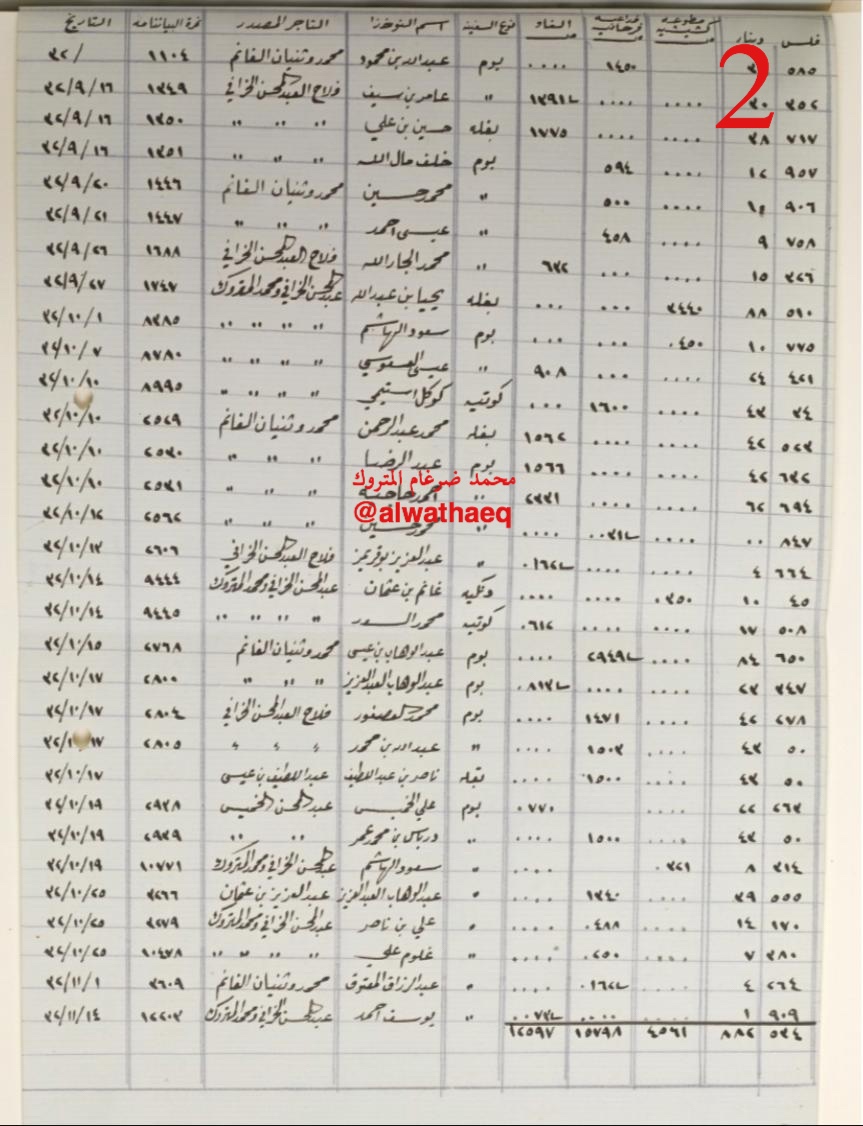 التاريخ نمرة البيانتامه التاجر المصدر اسم النوخذا نوع السفينة الفاو دينار فلس
2
/ ٣٢ ١١٠٤ محمد وثنيان الغانم عبدالله بن محمود بوم .... ١٤٥٠ ٥٨٥
٣٢/٩/١٦ ١٣٤٩ فلاح العبدالمحسن الخرافي عامر بن سيف " ١٣٩١ .... .... ٣٠ ٣٥٢
٣٢/٩/١٦ ١٣٥٠ " " " حسين بن علي بغله ١٧٧٥ .... .... ٣٨ ٧١٧
٣٢/٩/١٦ ١٣٥١ " " " خلف مال الله بوم ٥٩٤ .... ١٢ ٩٥٧
٣٢/٩/٢٠ ١٤٤٦ محمد وثنيان الغانم محمد حسين " ٥٠٠ .... ٩٠٦
٣٢/٩/٢١ ١٤٤٧ " " " عيسى احمد " ٤٥٨ .... ٩ ٧٥٨
٣٢/٩/٢٦ ١٦٨٨ فلاح العبدالمحسن الخرافي محمد الجارالله " ٦٣٢ ... .... ١٥ ٣٢٦
٣٢/٩/٢٧ ١٧٤٧ عبدالمحسن الخرافي ومحمد المتروك يحيا بن عبدالله بغله ... ... ٣٤٤٠ ٨٨ ٥١٠
٣٢/١٠/١ ٨٣٨٥ " " " " سعود الهاشم بوم ... ... ٤٥٠. ١٠ ٧٧٥
٣٢/١٠/٧ ٨٧٨٠ " " " " عيسى العسعوسي " ٩٠٨ ... .... ٢٤ ٤٢١
٣٢/١٠/١٠ ٨٩٩٥ " " " " كوتيه ... ١٦٠٠ .... ٤٣ ٣٤
٣٢/١٠/١٠ ٢٥٢٩ محمد وثنيان الغانم محمد عبدالرحمن بغله ١٥٦٢ .... .... ٤٢ ٥٢٣
٣٢/١٠/١٠ ٢٥٣٠ " " " عبدالرضا بوم ١٥٦٦ .... .... ٤٢ ٦٣٢
محمد ضرغام المتروك
٣٢/١٠/١٠ ٢٥٣١ " " " " ٢٣٣١ .... .... ٦٢ ٦٩٤
@alwathaeq
٣٢/١٠/١٢ ٢٥٦٢ " " " محمد حسين " .... .... ٨٤٧
٣٢/١٠/١٣ ٢٦٠٦ فلاح العبدالمحسن الخرافي عبدالعزيز بوقريمز " .... .... ٤ ٦٦٤
٣٢/١٠/١٤ ٩٤٤٤ عبدالمحسن الخرافي ومحمد المتروك غانم بن عثمان .... .... ٣٥٠. ١٠ ٤٥
٣٢/١٠/١٤ ٩٤٤٥ " " " " محمد السعد كوتيه ٦١٢. .... .... ١٧ ٥٠٨
٣٢/١٠/١٥ ٢٧٦٨ محمد وثنيان الغانم عبدالوهاب بن عيسى بوم .... ٢٩٤٩ .... ٨٤ ٦٥٠
٣٢/١٠/١٧ ٢٨٠٠ " " " عبدالوهاب العبدالعزيز بوم .... .... ٢٣ ٣٤٧
٣٢/١٠/١٧ ٢٨٠٤ فلاح العبدالمحسن الخرافي محمد العصفور بوم .... ١٤٧١ .... ٤٢ ٢٧٨
٣٢/١٠/١٧ ٢٨٠٥ " " " عبدالله بن محمد " .... ١٥٠٣ .... ٤٣ ٥٠
٣٢/١٠/١٧ عبداللطيف بن عيسى ناصر بن عبداللطيف بغله .... ١٥٠٠ .... ٤٣ ٥٠
٣٢/١٠/١٩ ٢٩٣٨ عبدالمحسن الخميس علي الخميس بوم ٧٧٠. .... ٢٢ ٢٦٣
٣٢/١٠/١٩ ٢٩٣٩ " " درباس بن محمد عمر " .... ١٥٠٠ .... ٤٣ ٥٠
٣٢/١٠/١٩ ١٠٧٧١ عبدالمحسن الخرافي ومحمد المتروك سعود الهاشم " .... .... ٣٢١. ٨ ٣١٤
٣٢/١٠/٢٥ ٣٢٦٦ عبدالعزيز بن عثمان عبدالوهاب العبدالعزيز " .... ١٣٤٠ .... ٣٩ ٥٥٥
٣٢/١٠/٢٥ ٣٢٧٩ عبدالمحسن الخرافي ومحمد المتروك علي بن ناصر " .... ٤٨٨. .... ١٤ ١٧٠
٣٢/١٠/٢٥ ١٠٤٧٨ " " " " غلوم علي " .... ٢٥٠. .... ٧ ٣٨٠
٣٢/١١/١ ٣٦٠٩ محمد وثنيان الغانم عبدالرزاق المعتوق " .... .... ٤ ٢٦٤
٣٢/١١/١٤ ١٢٢٠٣ عبدالمحسن الخرافي ومحمد المتروك يوسف احمد " .... .... ١ ٩٠٩
١٢٥٩٧ ١٥٧٩٨ ٤٥٦١ ٨٨٢ ٥٣٤